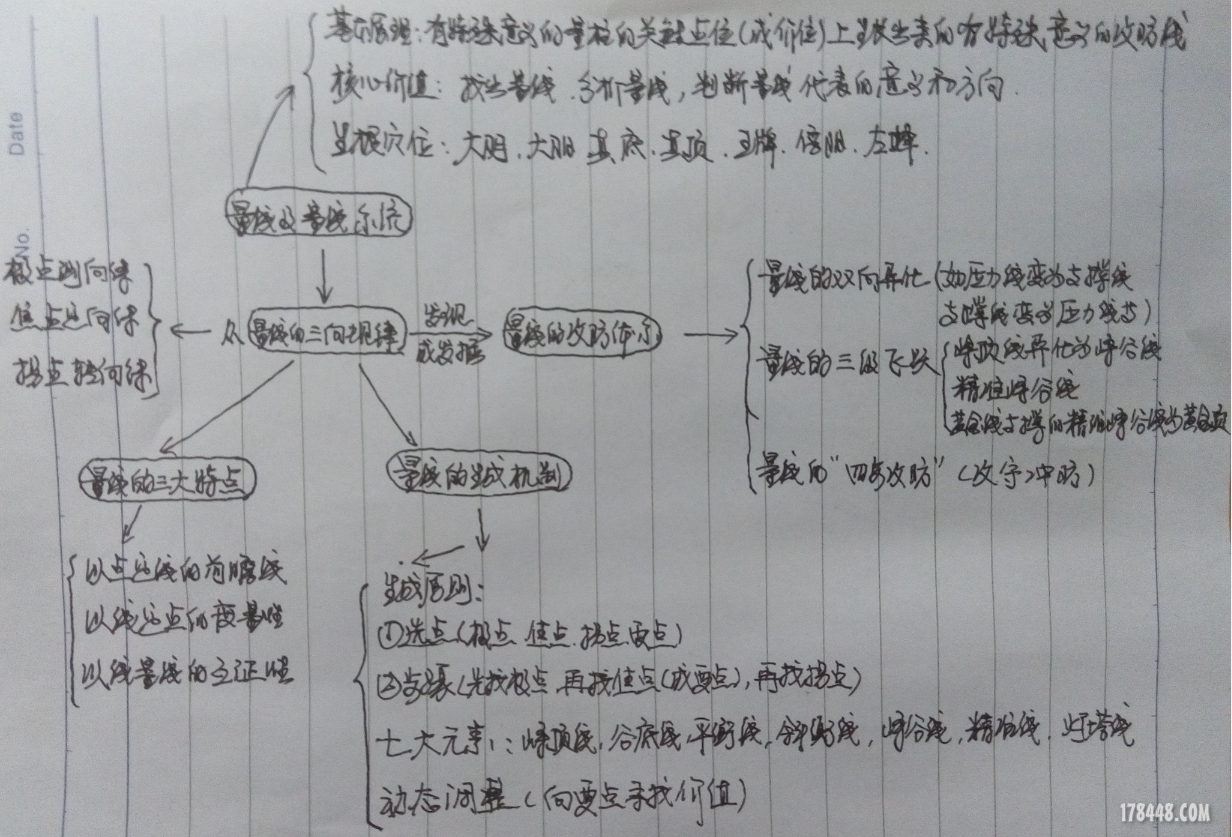 基本原理:有特殊意义的量柱的关键点位(或价位)上生长出来的有特殊意义的攻防线
核心价值:找出量线、分析量线,判断量线代表的意义和方向.
生根穴位:大阴、大阳、真底、真顶、王牌、倍阳、左峰.
Date
No.
量线及量线系统
极点测向律
焦点定向律
拐点转向律
从
量线的三向规律
发现
或发掘
量线的攻防体系
量线的双向异化(如压力线变为支撑线
支撑线变为压力线等)
量线的三级飞跃
峰顶线异化为峰谷线
精准峰谷线
黄金线支撑的精准峰谷线为黄金
量线的“四步攻防”(攻守冲防)
量线的三大特点
量线的生成机制
以点定线的前瞻线
以线定点的度量性
以线量线的互证性
生成原则:
①选点(极点、焦点、拐点、要点)
②步骤(先找极点,再找焦点(或要点),再找拐点)
七大元素:峰顶线,谷底线,平衡线,斜衡线,峰谷线,精准线、灯塔线
动态调整(向要点寻找价值)
178448.COM